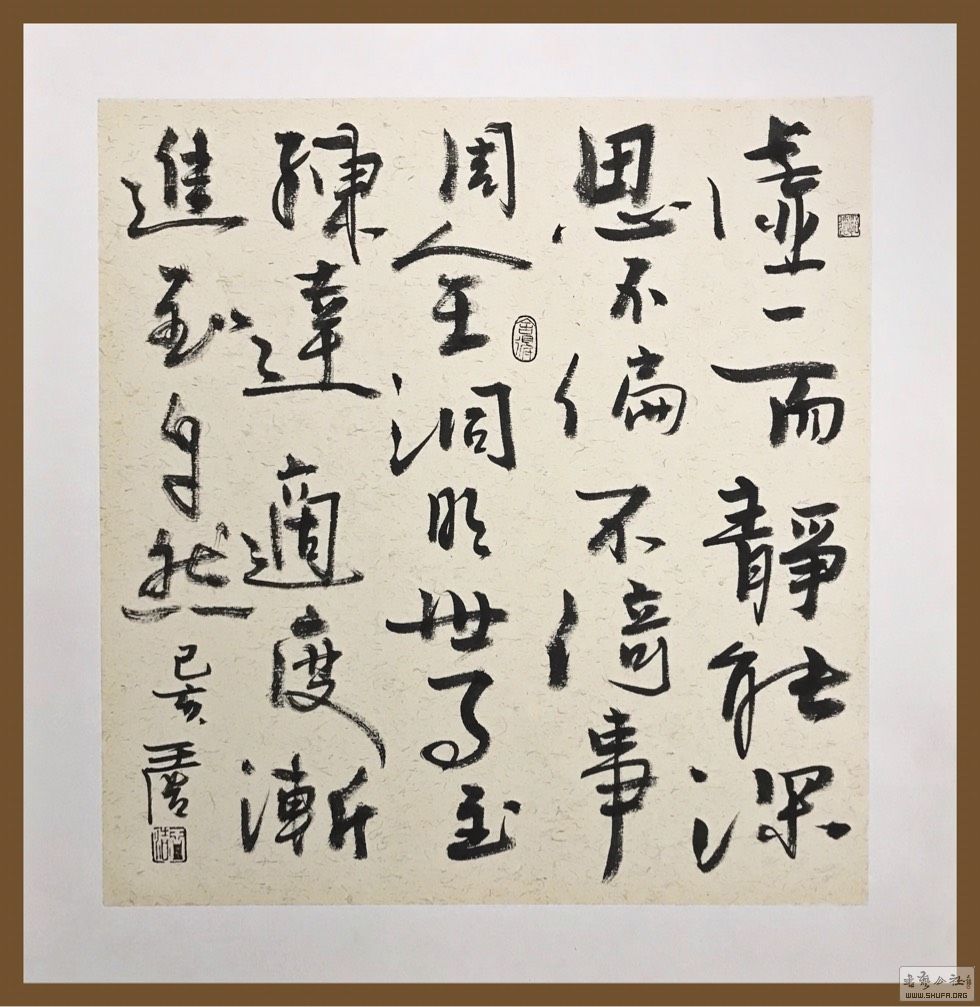 虛一而靜能深
思不偏不倚事
周全洞明世事至
練達適度漸
進到自然
己亥 王
舍得
WWW.SHUFA.ORG